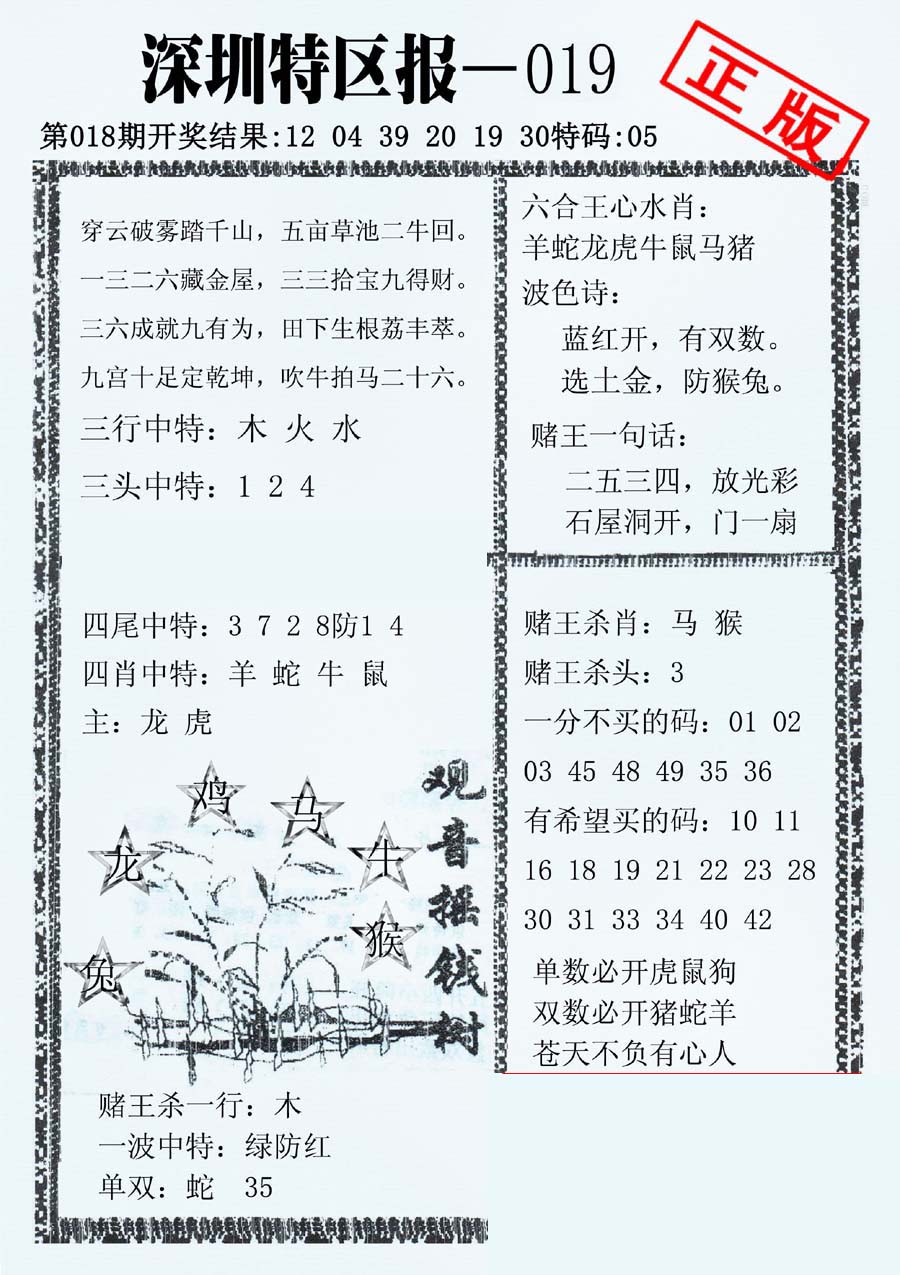 深圳特区报—019
正版
第018期开奖结果:12 04 39 20 19 30特码:05
穿云破雾踏千山，五亩草池二牛回。
一三二六藏金屋，三三拾宝九得财。
三六成就九有为，田下生根荔丰萃。
九宫十足定乾坤，吹牛拍马二十六。
三行中特：木 火 水
三头中特：1 2 4
六合王心水肖：
羊蛇龙虎牛鼠马猪
波色诗：
蓝红开，有双数。
选土金，防猴兔。
赌王一句话：
二五三四，放光彩
石屋洞开，门一扇
四尾中特：3 7 2 8防1 4
四肖中特：羊 蛇 牛 鼠
主：龙 虎
观音摇钱树
鸡
马
龙
牛
猴
兔
赌王杀一行：木
一波中特：绿防红
单双：蛇 35
赌王杀肖：马 猴
赌王杀头：3
一分不买的码：01 02
03 45 48 49 35 36
有希望买的码：10 11
16 18 19 21 22 23 28
30 31 33 34 40 42
单数必开虎鼠狗
双数必开猪蛇羊
苍天不负有心人